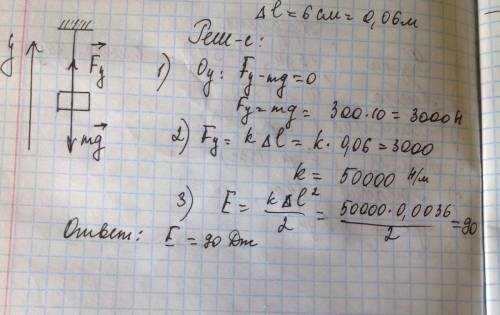 Δl = 6 см = 0,06 м
Реш-е:
y
Fy
mg
1) Oy: Fy - mg = 0
Fy = mg = 300·10 = 3000 Н
2) Fy = kΔl = k·0,06 = 3000
k = 50000 Н/м
3) E = kΔl²/2 = 50000·0,0036/2 = 90
Ответ: E = 90 Дж